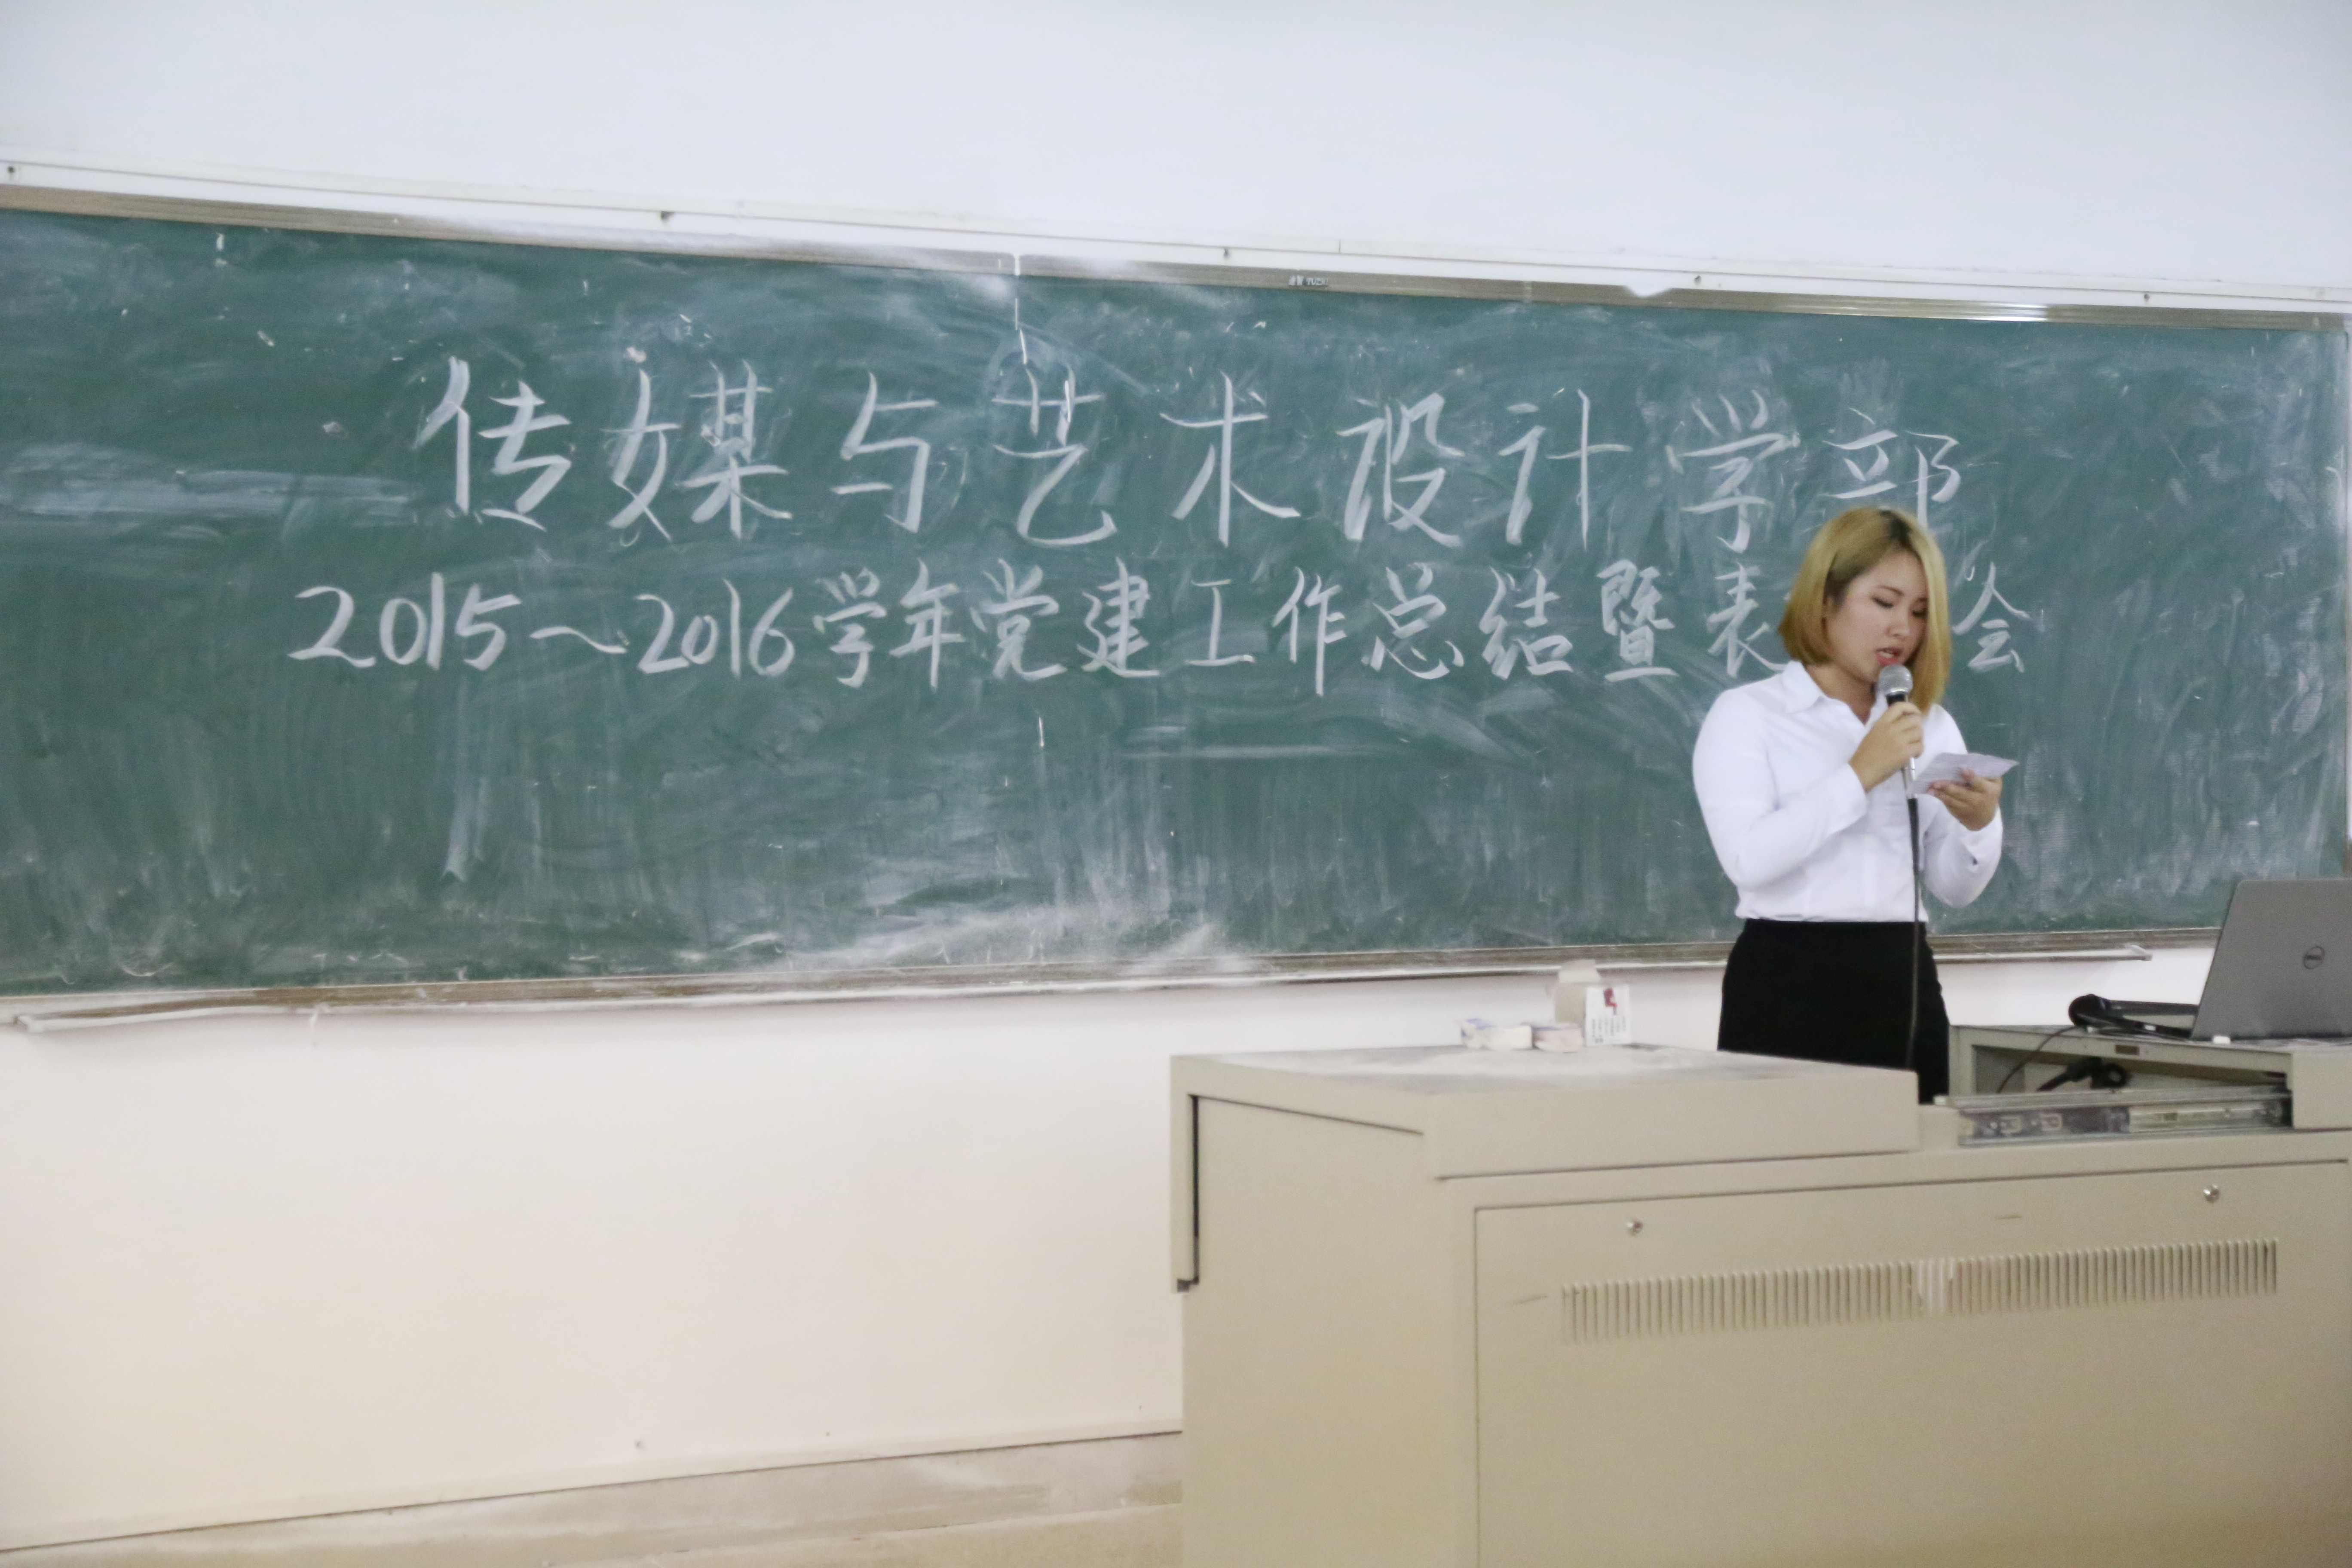 传媒与艺术设计学部
2015～2016学年党建工作总结暨表 会
DELL